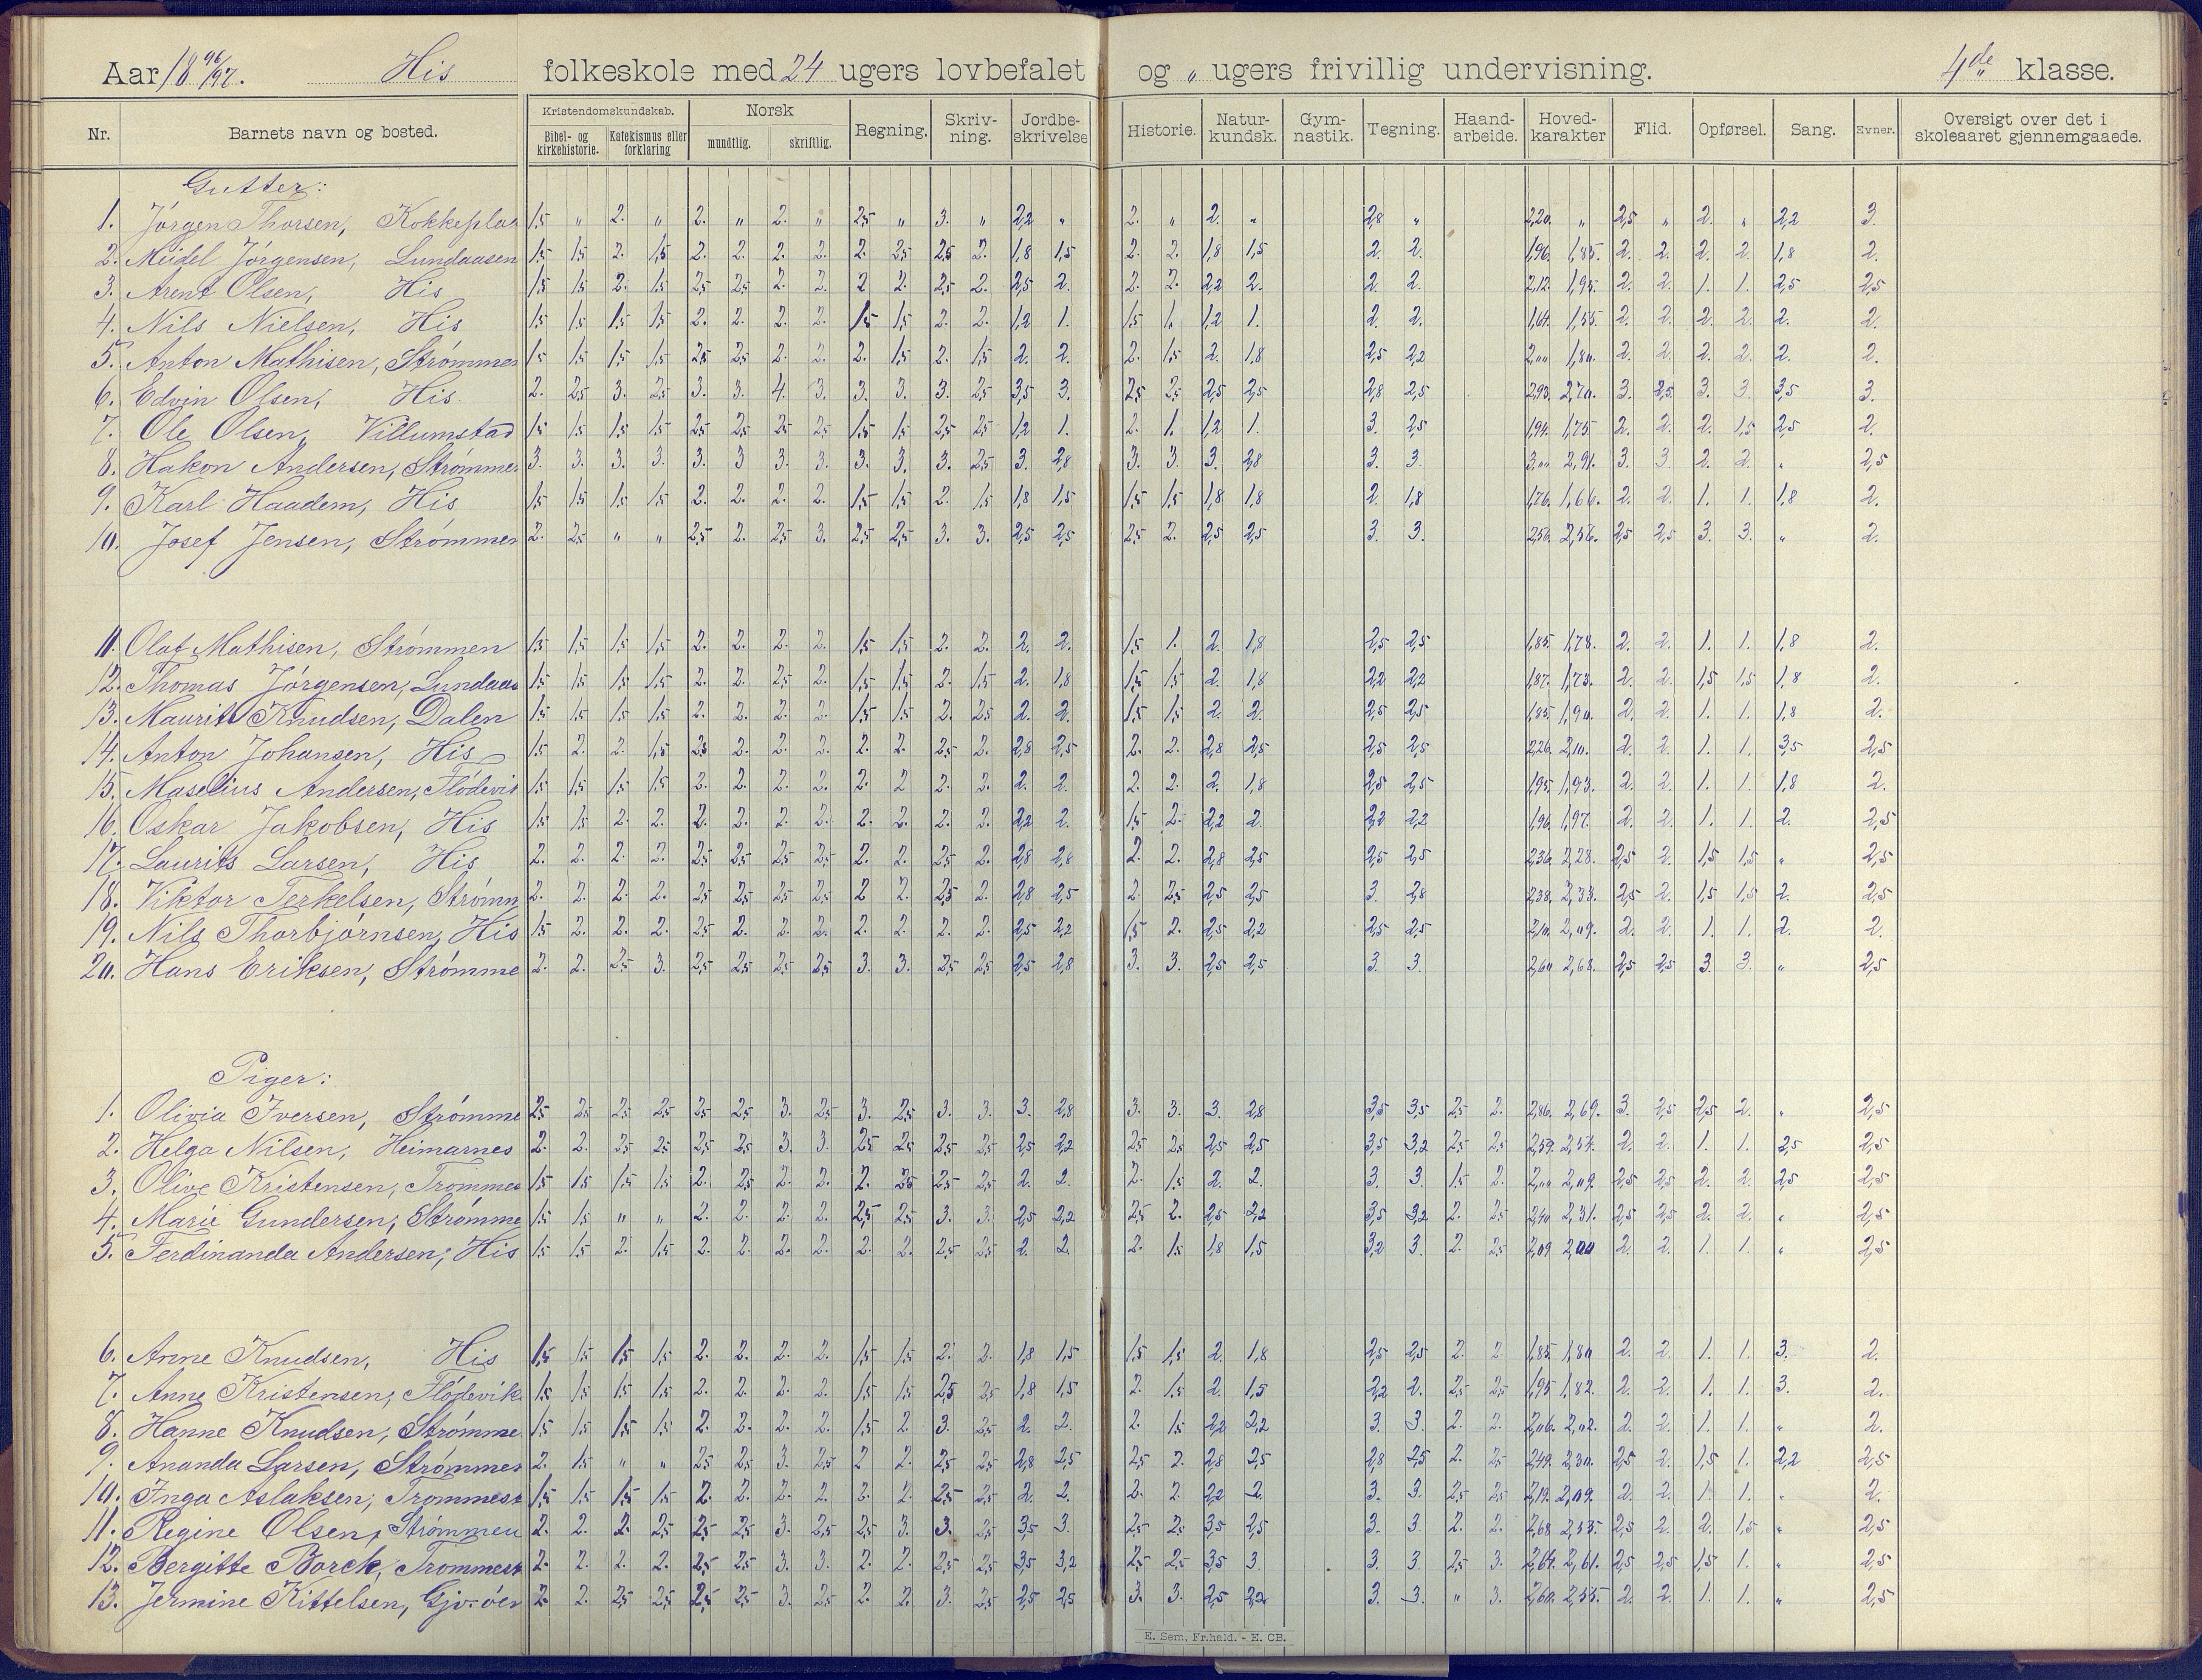 Aar 1896/97. His folkeskole med 24 ugers lovbefalet og „ ugers frivillig undervisning. 4de klasse.
Nr. Barnets navn og bosted. Kristendomskundskab. Bibel- og kirkehistorie. Katekismus eller forklaring Norsk mundtlig. skriftlig. Regning. Skriv-ning. Jordbe-skrivelse Historie. Natur-kundsk. Gym-nastik. Tegning. Haand-arbeide. Hoved-karakter Flid. Opførsel. Sang. Evner. Oversigt over det i skoleaaret gjennemgaaede.
Gutter:
1. Jørgen Thorsen, Kokkeplas 1,5 „ 2. „ 2. „ 2. „ 2,5 „ 3. „ 2,2 „ 2. „ 2. „ 2,8 „ 2,20. „ 2,5 „ 2. „ 2,2 3.
2. Meidel Jørgensen, Lundaasen 1,5 1,5 2. 1,5 2. 2. 2. 2. 2. 2,5 2,5 2. 1,8 1,5 2. 2. 1,8 1,5 2. 2. 1,96. 1,85. 2. 2. 2. 2. 1,8 2.
3. Arent Olsen, His 1,5 1,5 2. 1,5 2,5 2,5 2. 2. 2 2. 2,5 2. 2,5 2. 2. 2. 2,2 2. 2. 2. 2,12. 1,95. 2. 2. 1. 1. 2,5 2,5
4. Nils Nielsen, His 1,5 1,5 1,5 1,5 2. 2. 2. 2. 1,5 1,5 2. 2. 1,2 1. 1,5 1. 1,2 1. 2. 2. 1,64. 1,55. 2. 2. 2. 2. 2. 2.
5. Anton Mathisen, Strømmen 1,5 1,5 1,5 1,5 2,5 2,5 2. 2. 2. 1,5 2. 1,5 2. 2. 2. 1,5 2. 1,8 2,5 2,2 2,00 1,80. 2. 2. 2. 2. 2. 2.
6. Edvin Olsen, His 2. 2,5 3. 2,5 3. 3. 4. 3. 3. 3. 3. 2,5 3,5 3. 2,5 2,5 2,5 2,5 2,8 2,5 2,93. 2,70. 3. 2,5. 3. 3 3,5 3.
7. Ole Olsen, Villumstad 1,5 1,5 1,5 1,5 2,5 2,5 2,5 2,5 1,5 1,5 2,5 2,5 1,2 1. 2. 1. 1,2 1. 3. 2,5 1,94. 1,75. 2. 2. 2. 1,5 2,5 2.
8. Hakon Andersen, Strømmen 3. 3. 3. 3. 3. 3 3. 3. 3. 3. 3. 2,5 3. 2,8 3. 3. 3. 2,8 3. 3. 3,00 2,91. 3. 3 2. 2. „ 2,5
9. Karl Haadem, His 1,5 1,5 1,5 1,5 2. 2. 2. 2. 1,5 1,5 2. 1,5 1,8 1,5 1,5 1,5 1,8 1,8 2. 1,8 1,76. 1,66. 2. 2. 1. 1. 1,8 2.
10. Josef Jensen, Strømmen 2. 2,5 „ „ 2,5 2. 2,5 3. 2,5 2,5 3. 3. 2,5 2,5 2,5 2. 2,5 2,5 3. 3. 2,56. 2,56. 2,5 2,5 3. 3. „ 2.
11. Olaf Mathisen, Strømmen 1,5 1,5 1,5 1,5 2. 2. 2. 2. 1,5 1,5 2. 2. 2. 2. 1,5 1. 2. 1,8 2,5 2,5 1,85. 1,78. 2. 2. 1. 1. 1,8 2.
12. Thomas Jørgensen, Lundaas 1,5 1,5 1,5 1,5 2. 2. 2,5 2. 1,5 1,5 2. 1,5 2. 1,8 1,5 1,5 2. 1,8 2,2 2,2 1,87. 1,73. 2. 2. 1,5 1,5 1,8 2.
13. Maurits Knudsen, Dalen 1,5 1,5 1,5 1,5 2. 2. 2. 2. 1,5 1,5 2. 2,5 2. 2. 1,5 1,5 2. 2. 2,5 2,5 1,85. 1,90. 2. 2. 1. 1. 1,8 2.
14. Anton Johansen, His 1,5 2. 2. 1,5 2,5 2. 2. 2. 2. 2. 2,5 2. 2,8 2,5 2. 2. 2,8 2,5 2,5 2,5 2,26. 2,10. 2. 2. 1. 1. 3,5 2,5
15. Maselius Andersen, Flødevik 1,5 1,5 1,5 1,5 2. 2. 2. 2. 2. 2 2. 2. 2. 2. 2. 2. 2. 1,8 2,5 2,5 1,95. 1,93. 2. 2. 1. 1. 1,8 2.
16. Oskar Jakobsen, His 1,5 1,5 2. 2. 2. 2. 2. 2. 2. 2. 2. 2. 2,2 2. 1,5 2. 2,2 2. 2,2 2,2 1,96. 1,97. 2. 2. 1. 1. 2. 2,5
17. Laurits Larsen, His 2. 2. 2. 2. 2,5 2,5 2,5 2,5 2. 2. 2,5 2. 2,8 2,8 2. 2. 2,8 2,5 2,5 2,5 2,36. 2,28. 2,5 2. 1,5 1,5 „ 2,5
18. Viktor Terkelsen, Strømm 2. 2. 2. 2. 2,5 2,5 2,5 2,5 2 2. 2,5 2. 2,8 2,5 2. 2,5 2,5 2,5 3. 2,8 2,38. 2,33. 2,5 2. 1,5 1,5 2. 2,5
19. Nils Thorbjørnsen, His 1,5 2. 2. 2. 2,5 2. 2. 2. 2. 2. 2. 2. 2,5 2,2 1,5 2. 2,5 2,2 2,5 2,5 2,10. 2,09. 2. 2. 1. 1. 2. 2.
20. Hans Eriksen, Strømme 2. 2. 2,5 3. 2,5 2,5 2,5 2,5 3. 3. 2,5 2,5 2,5 2,8 3. 3. 2,5 2,5 3. 3. 2,60 2,68. 2,5 2,5 3. 3. „ 2,5
Piger:
1. Olivia Iversen, Strømme 2,5 2,5 2,5 2,5 2,5 2,5 3. 2,5 3. 2,5 3. 3. 3. 2,8 3. 3. 3. 2,8 3,5 3,5 2,5 2. 2,86. 2,69. 3. 2,5 2,5 2. „ 2,5
2. Helga Nilsen, Heimarnes 2. 2. 2,5 2,5 2,5 2,5 3. 3. 2,5 2,5 2,5 2,5 2,5 2,2 2,5 2,5 2,5 2,5 3,5 3,2 2,5 2,5 2,59. 2,54. 2. 2. 1. 1. 2,5 2,5
3. Olive Kristensen, Trommes 1,5 1,5 1,5 1,5 2. 2,5 2. 2. 2. 2,5 2,5 2,5 2. 2. 2. 1,5 2. 2. 3. 3. 1,5 2. 2,00 2,09. 2,5 2,5 2. 2. 2,5 2,5
4. Marie Gundersen, Strømme 1,5 1,5 „ „ 2. 2. 2. 2. 2,5 2,5 3. 3. 2,5 2,2 2,5 2. 2,5 2,2 3,5 3,2 2. 2,5 2,40 2,31. 2,5 2,5 2. 2. „ 2,5
5. Ferdinanda Andersen, His 1,5 1,5 2. 1,5 2. 2. 2. 2. 2. 2. 2,5 2,5 2. 2. 2. 1,5 1,8 1,5 3,2 3. 2. 2,5 2,09 2,00 2. 2. 1. 1. „ 2,5
6. Anne Knudsen, His 1,5 1,5 1,5 1,5 2. 2. 2. 2. 1,5 1,5 2. 2. 1,8 1,5 1,5 1,5 2. 1,8 2,5 2,5 2. 2. 1,85. 1,80 2. 2. 1. 1. 3. 2.
7. Anne Kristensen, Flødevik 1,5 1,5 1,5 1,5 2. 2. 2. 2. 1,5 1,5 2,5 2,5 1,8 1,5 2. 1,5 2. 1,5 2,2 2. 2,5 2,5 1,95 1,82. 2. 2. 1. 1. 3. 2.
8. Hanne Knudsen, Strømme 1,5 1,5 1,5 1,5 2. 2. 2. 2. 1,5 2 3. 2,5 2. 2. 2. 1,5 2,2 2,2 3. 3 2. 2. 2,06. 2,02. 2. 2. 1. 1. „ 2.
9. Ananda Larsen, Strømmen 2. 1,5 „ „ 2,5 2,5 3. 2,5 2 2. 2,5 2,5 2,8 2,5 2,5 2. 2,8 2,5 2,8 2,5 2. 2,5 2,49. 2,30. 2,5 2. 1,5 1. 2,2 2,5
10. Inga Aslaksen, Trommes 1,5 1,5 1,5 1,5 2. 2. 2. 2. 2. 2. 2,5 2,5 2. 2. 2. 2. 2,2 2. 3. 3. 2,5 2,5 2,19. 2,09. 2. 2. 1. 1. „ 2.
11. Regine Olsen, Strømmen 2. 2. 2. 2,5 2,5 2,5 3. 2,5 2,5 3. 3. 2,5 3,5 3. 2,5 2,5 3,5 2,5 3. 3. 2. 2. 2,68 2,55. 2,5 2. 2. 1,5 „ 2,5
12. Bergitte Borck, Trommes 2. 2. 2. 2. 2,5 2,5 3. 3. 2. 2. 2,5 2,5 3,5 3,2 2,5 2,5 3,5 3. 3. 3 2,5 3. 2,64. 2,61. 2,5 2,5 1,5 1. „ 2,5
13. Jermine Kittelsen, 2. 2. 2,5 2,5 2,5 2,5 3. 2,5 2. 2. 3. 2,5 2,5 2,5 3. 3. 2,5 2,2 3. 3. „ 3. 2,60. 2,55. 2. 2. 1. 1. „ 2,5
E. Sem, Fr.hald. - E. CB.